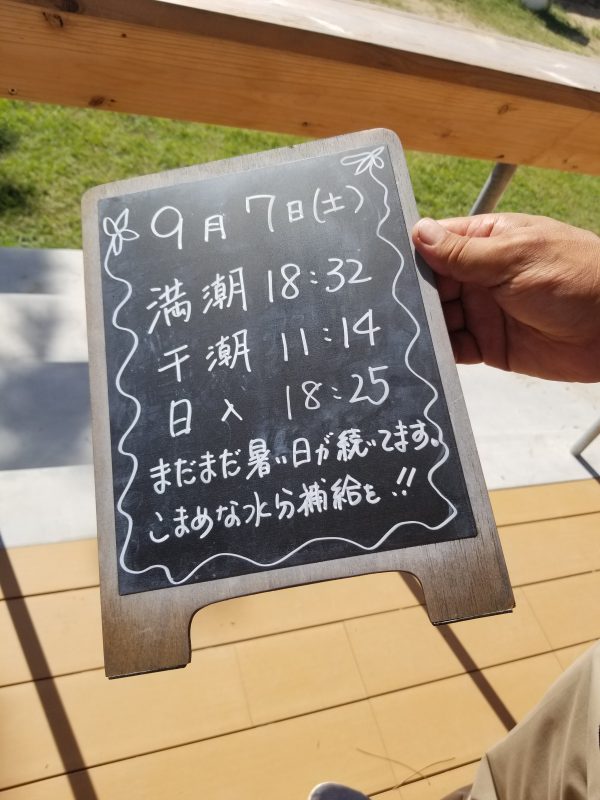 9月7日(土)
満潮 18:32
干潮 11:14
日入 18:25
まだまだ暑い日が続いてます。
こまめな水分補給を!!